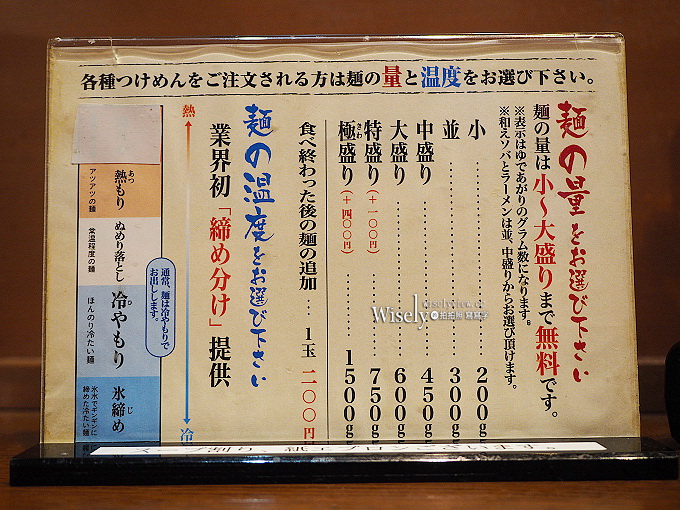 各種つけめんをご注文される方は麺の量と温度をお選び下さい。
麺の量をお選び下さい
麺の量は小〜大盛りまで無料です。
※表示はゆであがりのグラム数になります。
※和えソバとラーメンは並、中盛りからお選び頂けます。
小 200g
並 300g
中盛り 450g
大盛り 600g
特盛り(+一〇〇円) 750g
極盛り(+四〇〇円) 1500g
さわ
食べ終わった後の麺の追加… 1玉 二〇〇円
麺の温度をお選び下さい
業界初「締め分け」提供
熱
冷
通常、麺は冷やもりで
お出しします。
熱もり
あつ
アツアツの麺
ぬめり落とし
常温程度の麺
冷やもり
ひ
ほんのり冷たい麺
氷締め
じ
氷水でギンギンに
締めた冷たい麺
Wisely